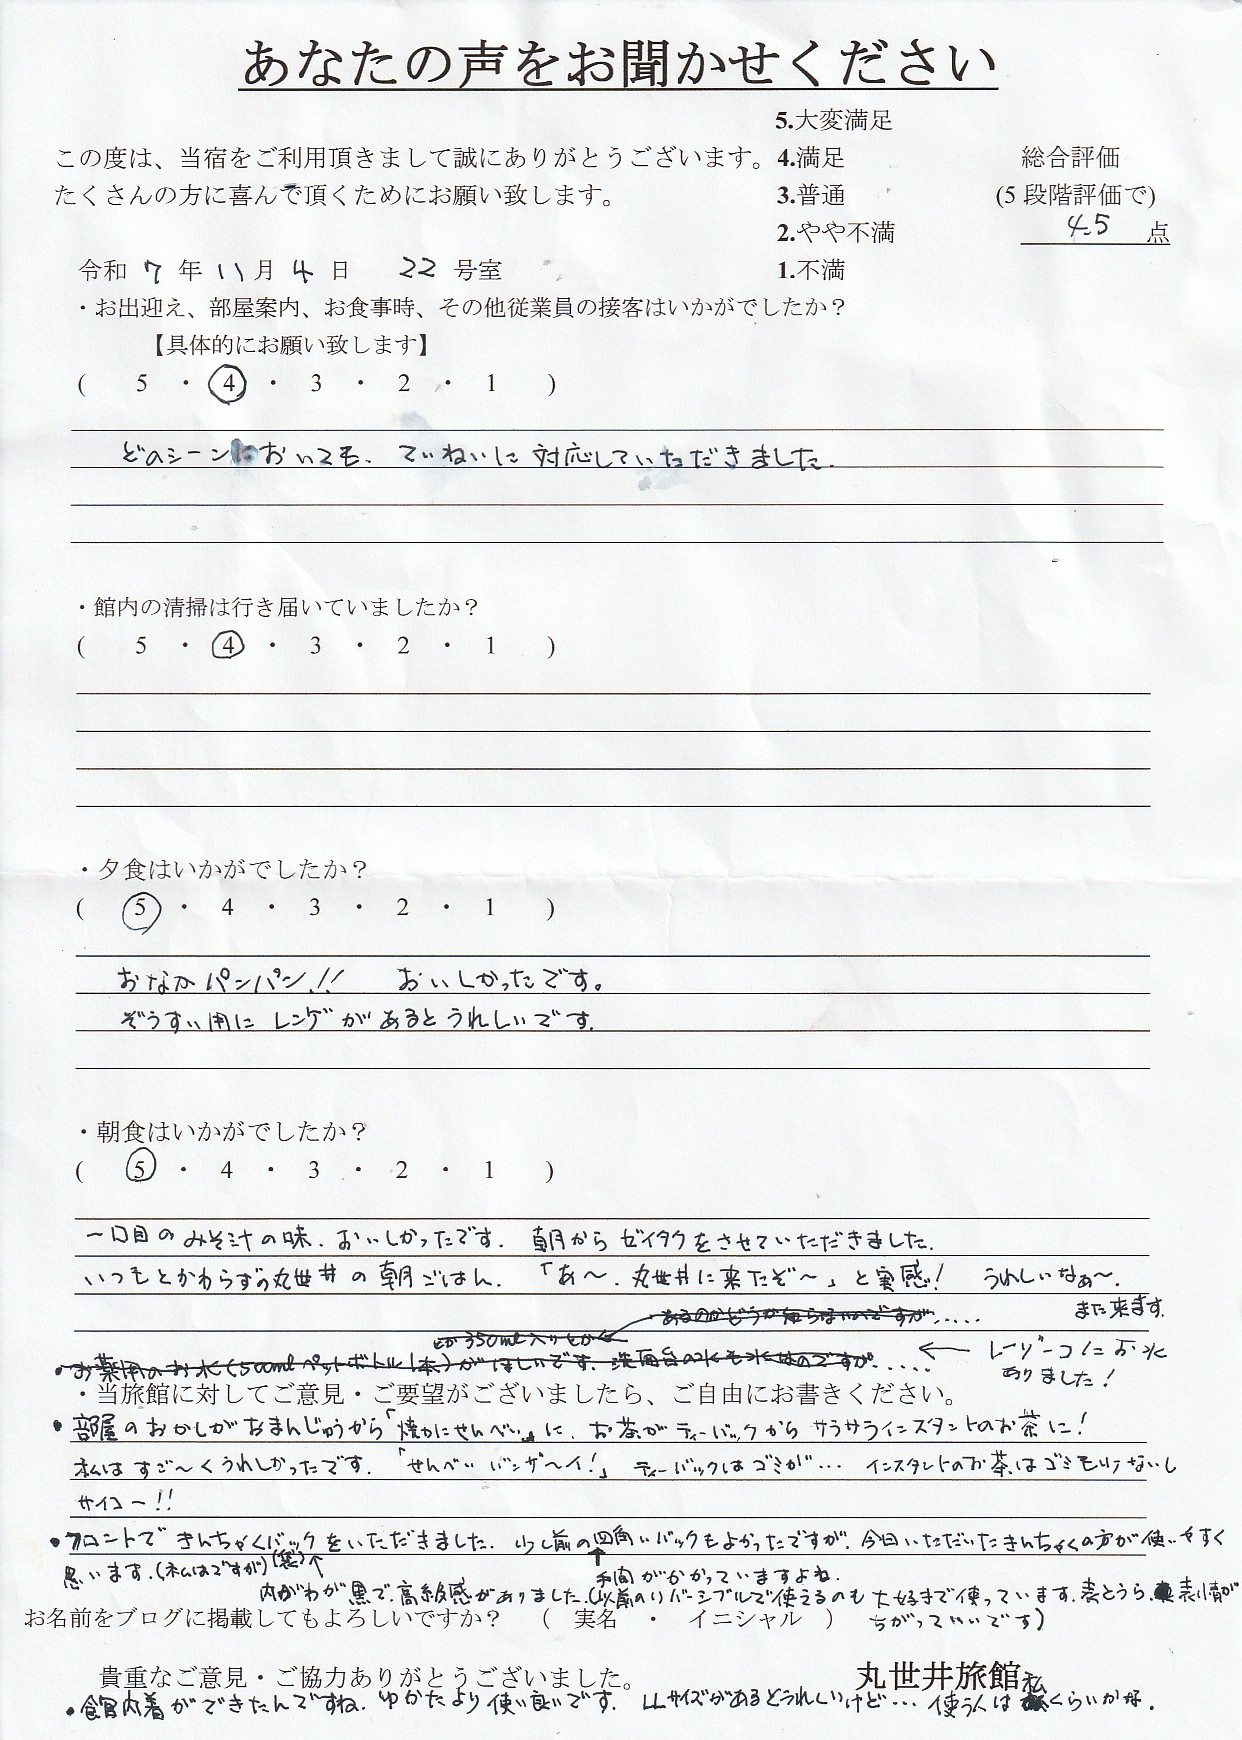 あなたの声をお聞かせください
5.大変満足
この度は、当宿をご利用頂きまして誠にありがとうございます。 4.満足 総合評価
たくさんの方に喜んで頂くためにお願い致します。 3.普通 (5段階評価で)
2.やや不満 4.5 点
令和 7 年 11 月 4 日 22 号室 1.不満
・お出迎え、部屋案内、お食事時、その他従業員の接客はいかがでしたか？
【具体的にお願い致します】
( 5 ・ 4 ・ 3 ・ 2 ・ 1 )
どのシーンにおいても、ていねいに対応していただきました。
・館内の清掃は行き届いていましたか？
( 5 ・ 4 ・ 3 ・ 2 ・ 1 )
・夕食はいかがでしたか？
( 5 ・ 4 ・ 3 ・ 2 ・ 1 )
おなかパンパン!! おいしかったです。
ぞうすい用にレンゲがあるとうれしいです。
・朝食はいかがでしたか？
( 5 ・ 4 ・ 3 ・ 2 ・ 1 )
一口目のみそ汁の味、おいしかったです。朝からゼイタクをさせていただきました。
いつもとかわらずの丸世井の朝ごはん。「あ～、丸世井に来たぞ～」と実感! うれしいなぁ～。
また来ます。
あるのかどうか知らないのですが.....
とか350ml入りとか
・お薬用のお水(500mlペットボトル1本)がほしいです。洗面台の水も水なのですが..... ← レイゾーコにお水
ありました!
・当旅館に対してご意見・ご要望がございましたら、ご自由にお書きください。
・部屋のおかしがおまんじゅうから「焼かにせんべい」に、お茶がティーバックからサラサラインスタントのお茶に!
私はすご～くうれしかったです。「せんべいバンザ～イ!」ティーバックはゴミが… インスタントのお茶はゴミも少ないし
サイコー!!
・フロントできんちゃくバックをいただきました。少し前の四角いバックもよかったですが、今回いただいたきんちゃくの方が使いやすく
思います。(私はですが)(笑)↑ ↑手間がかかっていますよね。
内がわが黒で、高級感がありました。(以前のリバーシブルで使えるのも大好きで使っています。表とうら、表情が
お名前をブログに掲載してもよろしいですか？ ( 実名 ・ イニシャル ) ちがっていいです)
貴重なご意見・ご協力ありがとうございました。 丸世井旅館
・館内着ができたんですね。ゆかたより使い良いです。LLサイズがあるとうれしいけど… 使う人は私くらいかな。